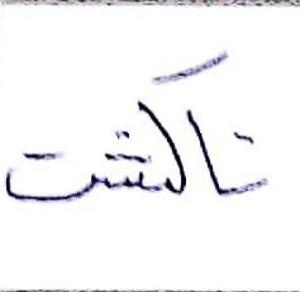 تاکشت